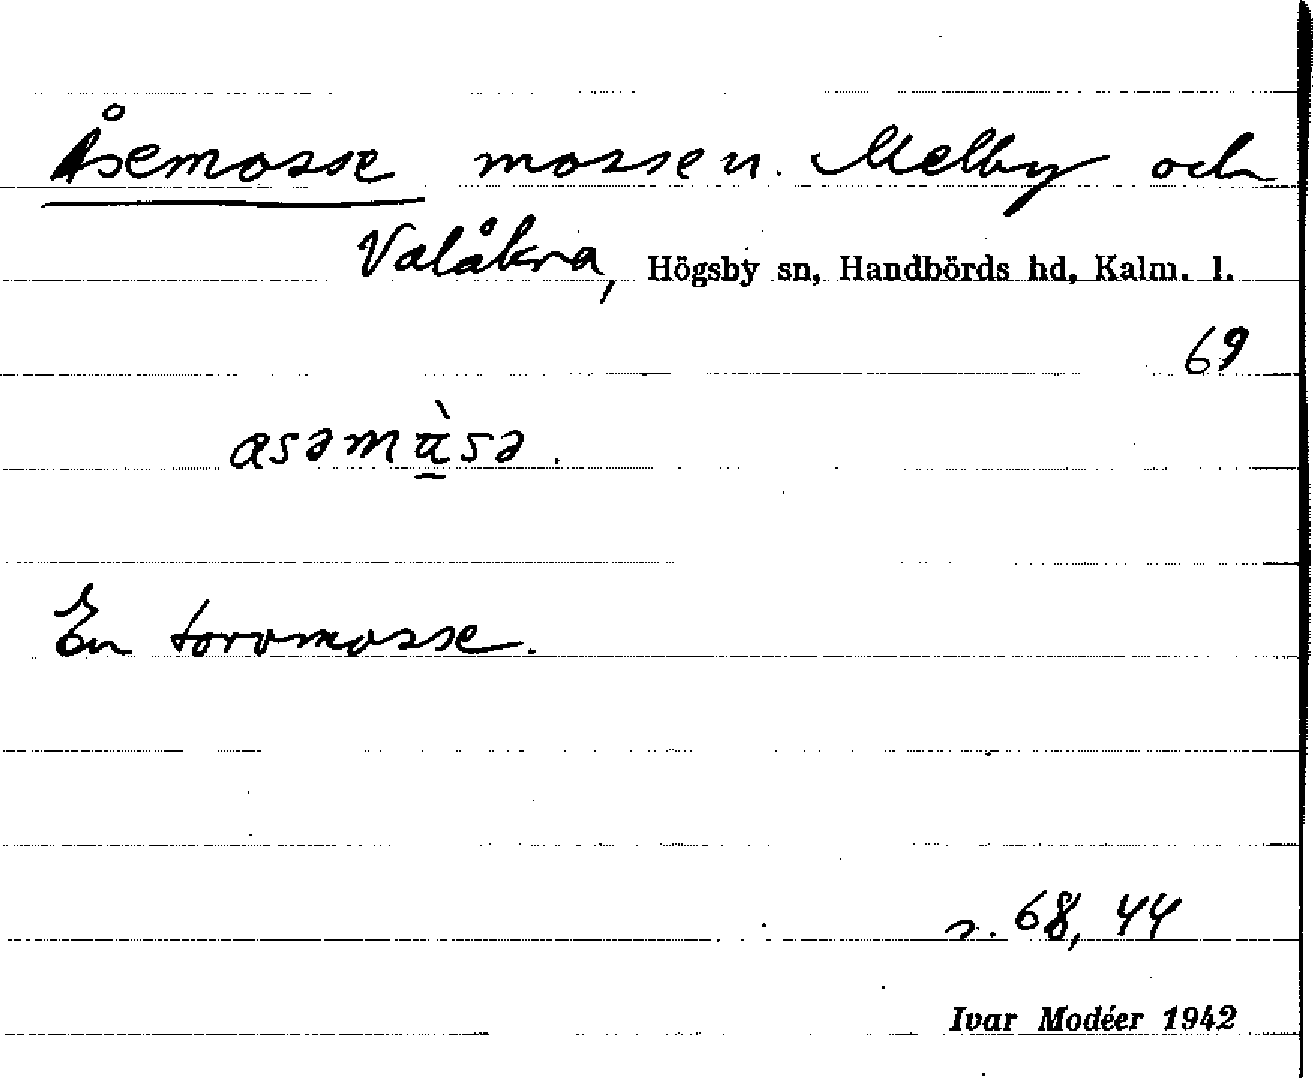 Åsemosse mosse u. Melby och
Valåkra, Högsby sn, Handbörds hd, Kalm. l.
69
En torvmosse.
s. 68, 44
Ivar Modéer 1942